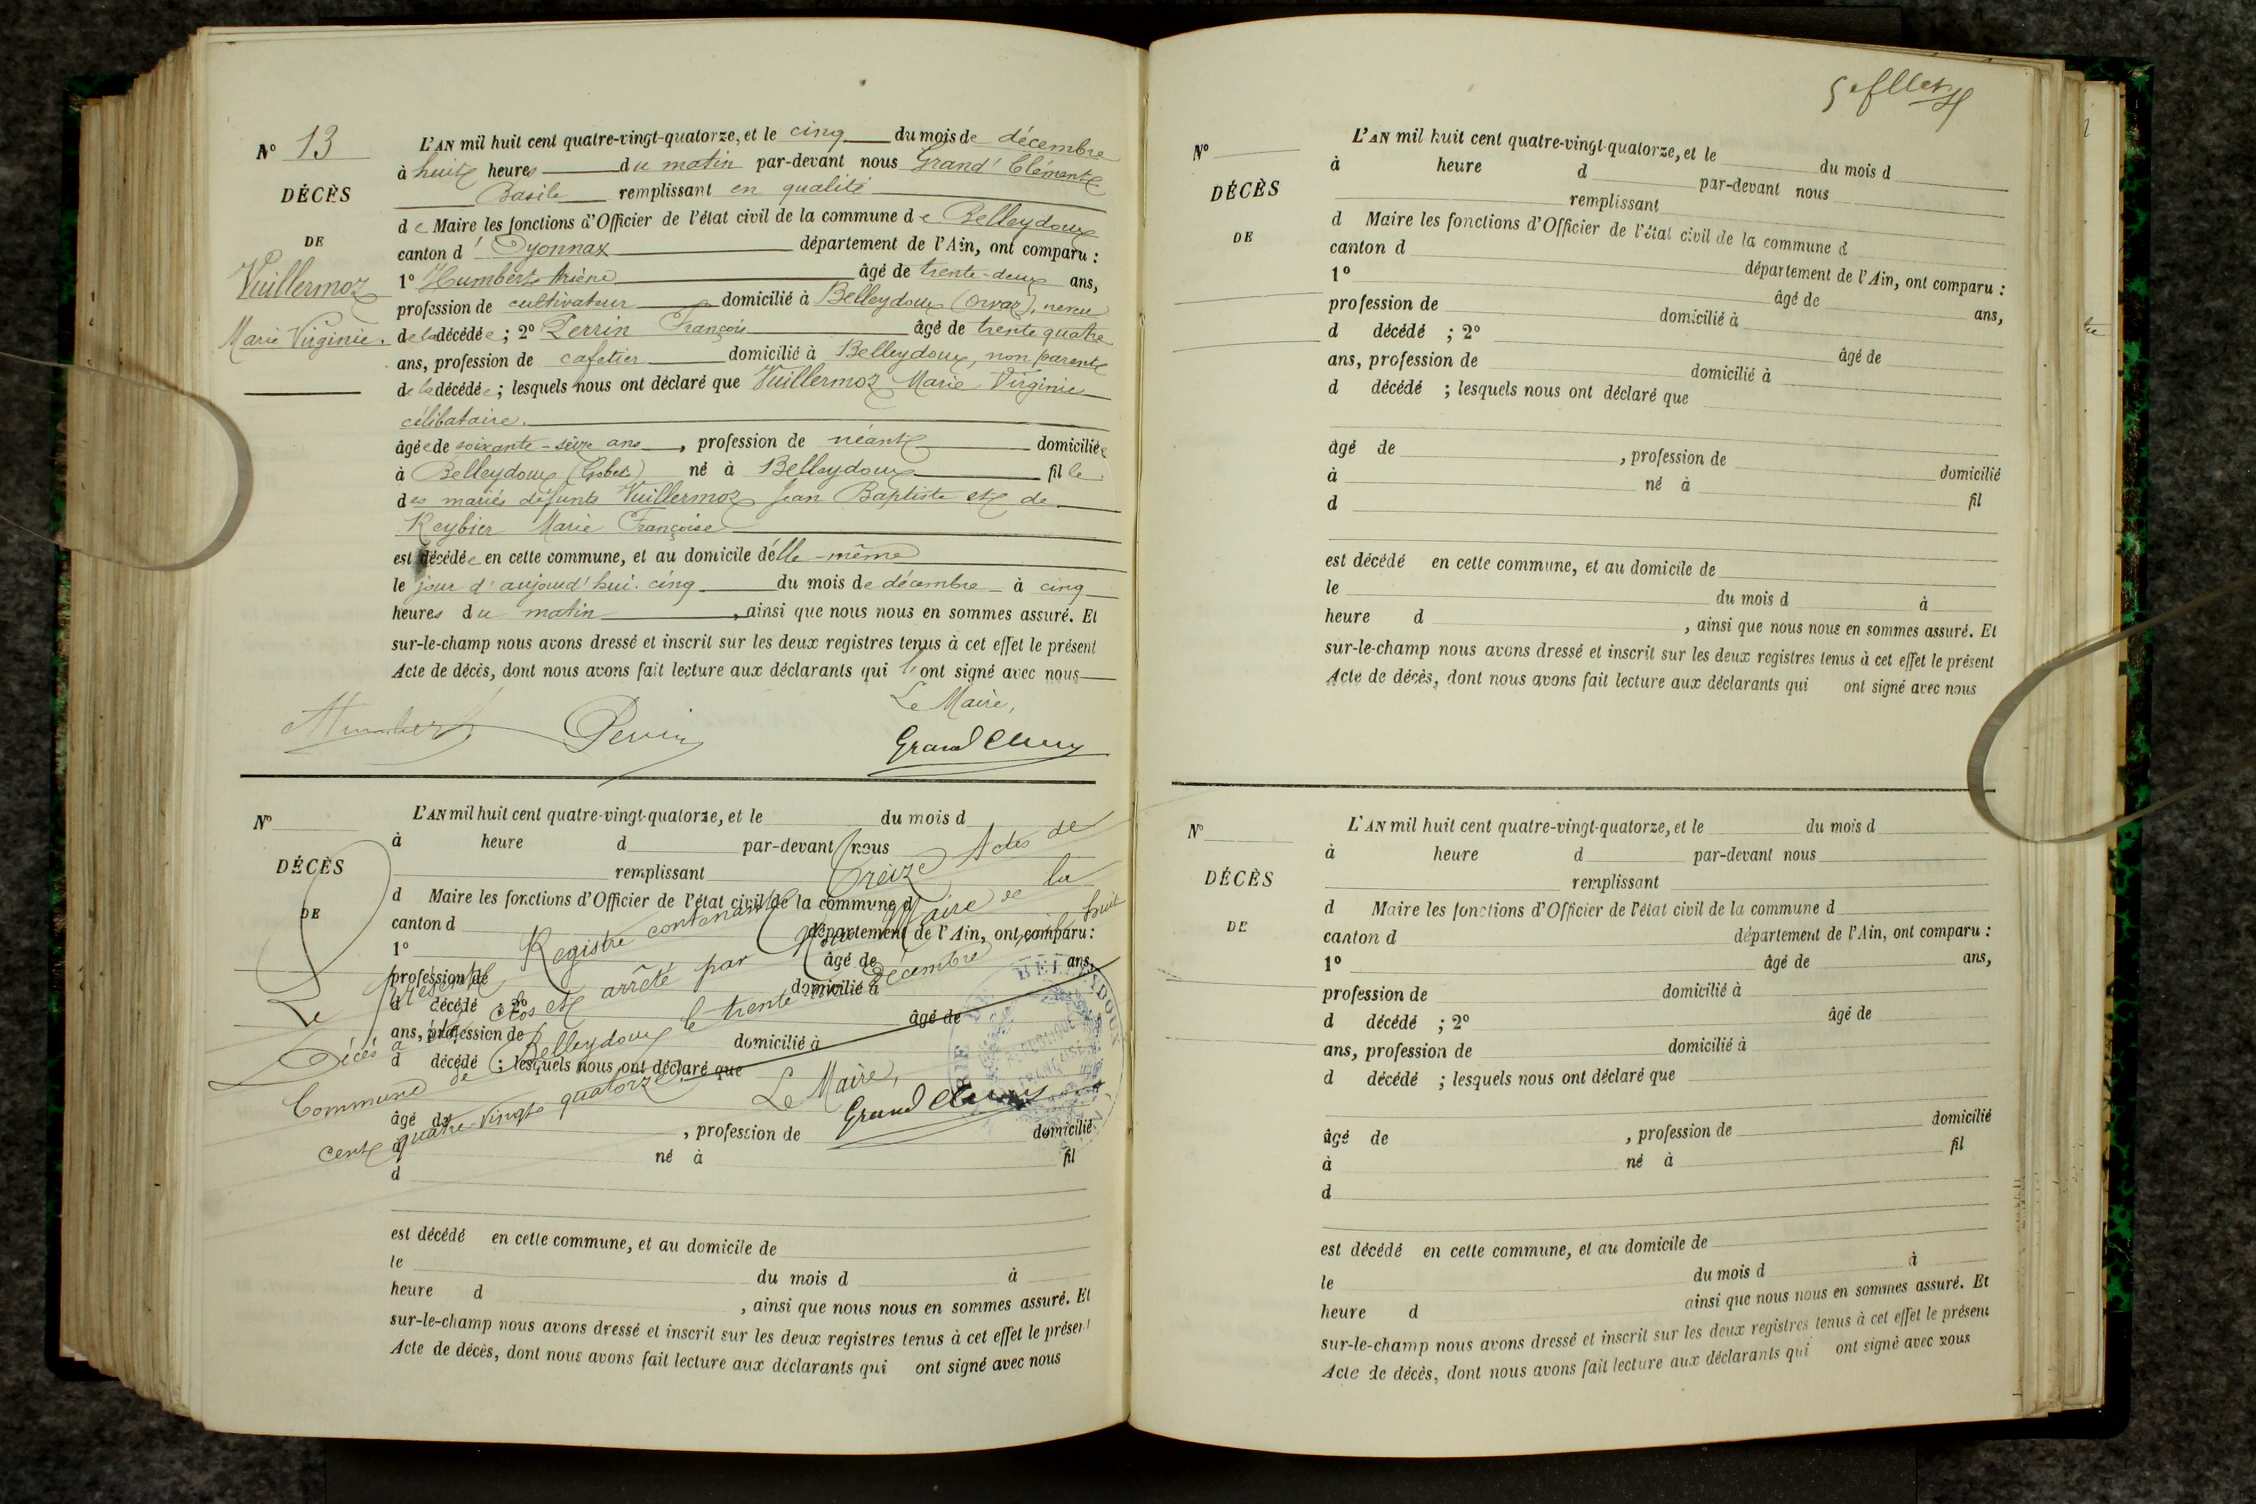 N° 13
DÉCÈS
DE
Vuillermoz
Marie Virginie.
L'AN mil huit cent quatre-vingt-quatorze, et le cinq du mois de décembre
à huit heures du matin par-devant nous Grand' Clément
Basile remplissant en qualité
de Maire les fonctions d'Officier de l'état civil de la commune de Belleydoux
canton d'Oyonnax département de l'Ain, ont comparu :
1° Humbert âgé de trente-deux ans,
profession de cultivateur domicilié à Belleydoux (Orvaz), neveu
de la décédée ; 2° Perrin François âgé de trente quatre
ans, profession de cafetier domicilié à Belleydoux, non parent
de la décédée ; lesquels nous ont déclaré que Vuillermoz Marie Virginie
célibataire.
âgée de soixante-seize ans, profession de néant domiciliée
à Belleydoux (Gobet) né à Belleydoux fille
des mariés défunts Vuillermoz Jean Baptiste et de
Reybier Marie Françoise
est décédée en cette commune, et au domicile d'elle-même
le jour d'aujourd'hui cinq du mois de décembre à cinq
heures du matin, ainsi que nous nous en sommes assuré. Et
sur-le-champ nous avons dressé et inscrit sur les deux registres tenus à cet effet le présent
Acte de décès, dont nous avons fait lecture aux déclarants qui l'ont signé avec nous
Le Maire,
Humbert Perrin Grand Clém
N°
DÉCÈS
DE
L'AN mil huit cent quatre-vingt-quatorze, et le du mois d
à heure d par-devant nous
remplissant
d Maire les fonctions d'Officier de l'état civil de la commune d
canton d département de l'Ain, ont comparu :
1° âgé de ans,
profession de domicilié à
d décédé ; 2° âgé de
ans, profession de domicilié à
d décédé ; lesquels nous ont déclaré que
âgé de , profession de domicilié
à né à fil
d
est décédé en cette commune, et au domicile de
le du mois d à
heure d , ainsi que nous nous en sommes assuré. Et
sur-le-champ nous avons dressé et inscrit sur les deux registres tenus à cet effet le présent
Acte de décès, dont nous avons fait lecture aux déclarants qui ont signé avec nous
Le présent Registre contenant treize Actes de
Décès a été clos et arrêté par Nous Maire de la
Commune de Belleydoux le trente un décembre mil huit
cent quatre-vingt quatorze.
Le Maire,
Grand Clém
MAIRIE DE BELLEYDOUX
RÉPUBLIQUE FRANÇAISE
5e
N°
DÉCÈS
DE
L'AN mil huit cent quatre-vingt-quatorze, et le du mois d
à heure d par-devant nous
remplissant
d Maire les fonctions d'Officier de l'état civil de la commune d
canton d département de l'Ain, ont comparu :
1° âgé de ans,
profession de domicilié à
d décédé ; 2° âgé de
ans, profession de domicilié à
d décédé ; lesquels nous ont déclaré que
âgé de , profession de domicilié
à né à fil
d
est décédé en cette commune, et au domicile de
le du mois d à
heure d , ainsi que nous nous en sommes assuré. Et
sur-le-champ nous avons dressé et inscrit sur les deux registres tenus à cet effet le présent
Acte de décès, dont nous avons fait lecture aux déclarants qui ont signé avec nous
N°
DÉCÈS
DE
L'AN mil huit cent quatre-vingt-quatorze, et le du mois d
à heure d par-devant nous
remplissant
d Maire les fonctions d'Officier de l'état civil de la commune d
canton d département de l'Ain, ont comparu :
1° âgé de ans,
profession de domicilié à
d décédé ; 2° âgé de
ans, profession de domicilié à
d décédé ; lesquels nous ont déclaré que
âgé de , profession de domicilié
à né à fil
d
est décédé en cette commune, et au domicile de
le du mois d à
heure d ainsi que nous nous en sommes assuré. Et
sur-le-champ nous avons dressé et inscrit sur les deux registres tenus à cet effet le présent
Acte de décès, dont nous avons fait lecture aux déclarants qui ont signé avec nous